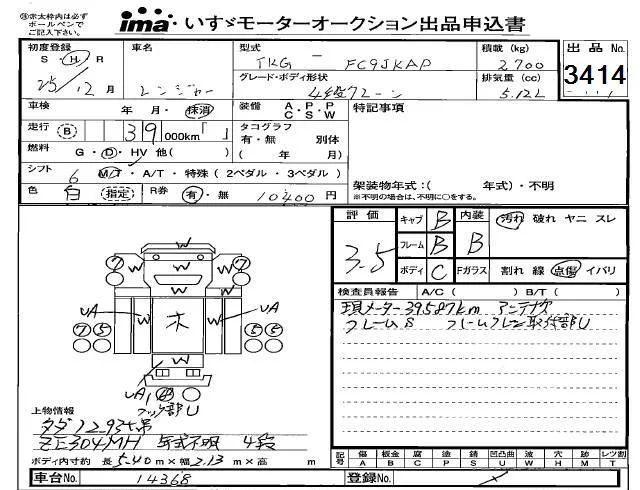 ㊟赤太枠内は必ず
ボールペンで
ご記入下さい。
ima いすゞモーターオークション出品申込書
初度登録 車名 型式 積載 (kg) 出品No.
S H R レンジャー TKG - FC9JKAP 2,700 3414
25年 12月 グレード・ボディ形状 排気量 (cc)
4段クレーン 5.12L
車検 年 月・抹消 装備 A・P・P 特記事項
C・S・W
走行 B 39 000km「 」 タコグラフ
有・無 別体
燃料 G・D・HV 他( ) ( 年 月)
シフト 6 MT・A/T・特殊 (2ペダル・3ペダル) 架装物年式:( 年式)・不明
色 白 指定 R券 有・無 10400 円 ※不明の場合は、不明に○をする。
評価 キャブ B 内装 汚れ 破れ ヤニ スレ
3.5 フレーム B B
ボディ C Fガラス 割れ 線 点傷 イバリ
検査員報告 A/C ( ) B/T ( )
現メーター39587km アンテナ欠
フレームS フレームフレン取付部U
W
7 W 7
UA W W W UA
7 5 木 5 5
W
UA W
フック部U
上物情報
タダノ 2.93t吊
ZE304MH 年式不明 4段
ボディ内寸約 長 5.40 m×幅 2.13 m×高 m
記号 傷 板金 腐 塗 錆 凹凸曲 波 穴 跡 レツ割
A B C P S U W H M T
車台No. 14368 登録No.